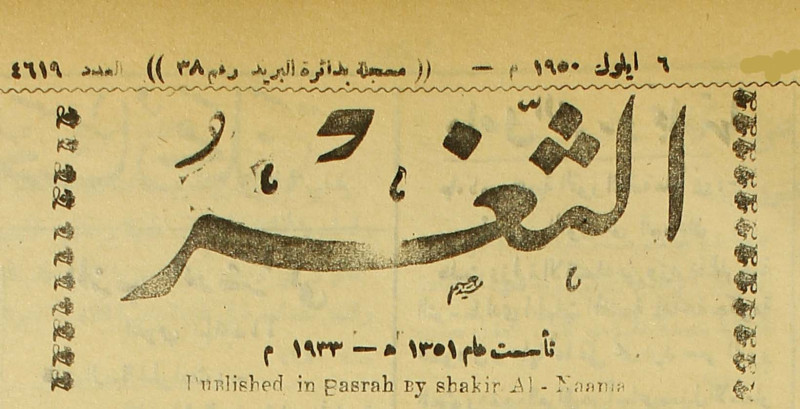 ٦ ايلول ١٩٥٠ م — (( مسجلة بدائرة البريد رقم ٣٨ )) العدد ٤٦١٩
الثغر
تأسست عام ١٣٥١ ه — ١٩٣٣ م
Published in Basrah By shakir Al - Naama